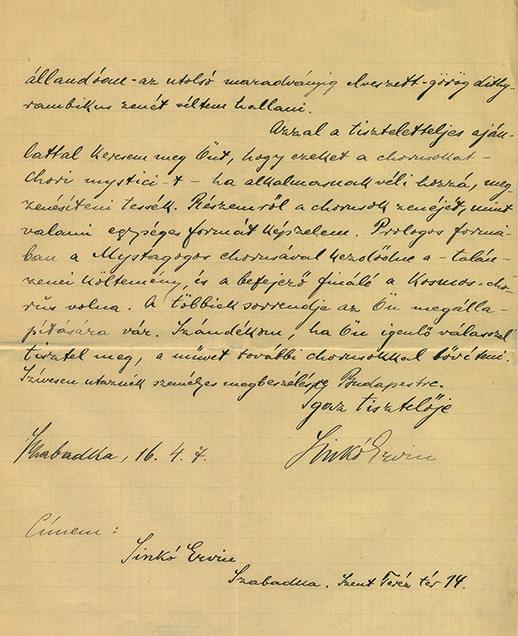 állandóan - az utolsó maradványig elveszett - görög dithy-
rambikus zenét véltem hallani.
Azzal a tiszteletteljes aján-
lattal keresem meg Önt, hogy ezeket a chorusokat -
chori mystici-t - ha alkalmasnak véli hozzá, meg
zenésíteni tessék. Részemről a chorusok zenéjét, mint
valami egységes formát képzelem. Prologos formá-
ban a Mystagogos chorusával kezdődne a - talán -
zenei költemény, és a befejező finálé a Kosmos-cho-
rus volna. A többiek sorrendje az Ön megálla-
pítására vár. Szándékom, ha Ön igenlő válasszal
tisztel meg, a művet további chorusokkal bővíteni.
Szívesen utaznék személyes megbeszélésre Budapestre.
Igaz tisztelője
Szabadka, 16. 4. 7.
Sinkó Ervin
Címem:
Sinkó Ervin
Szabadka. Szent Teréz tér 14.